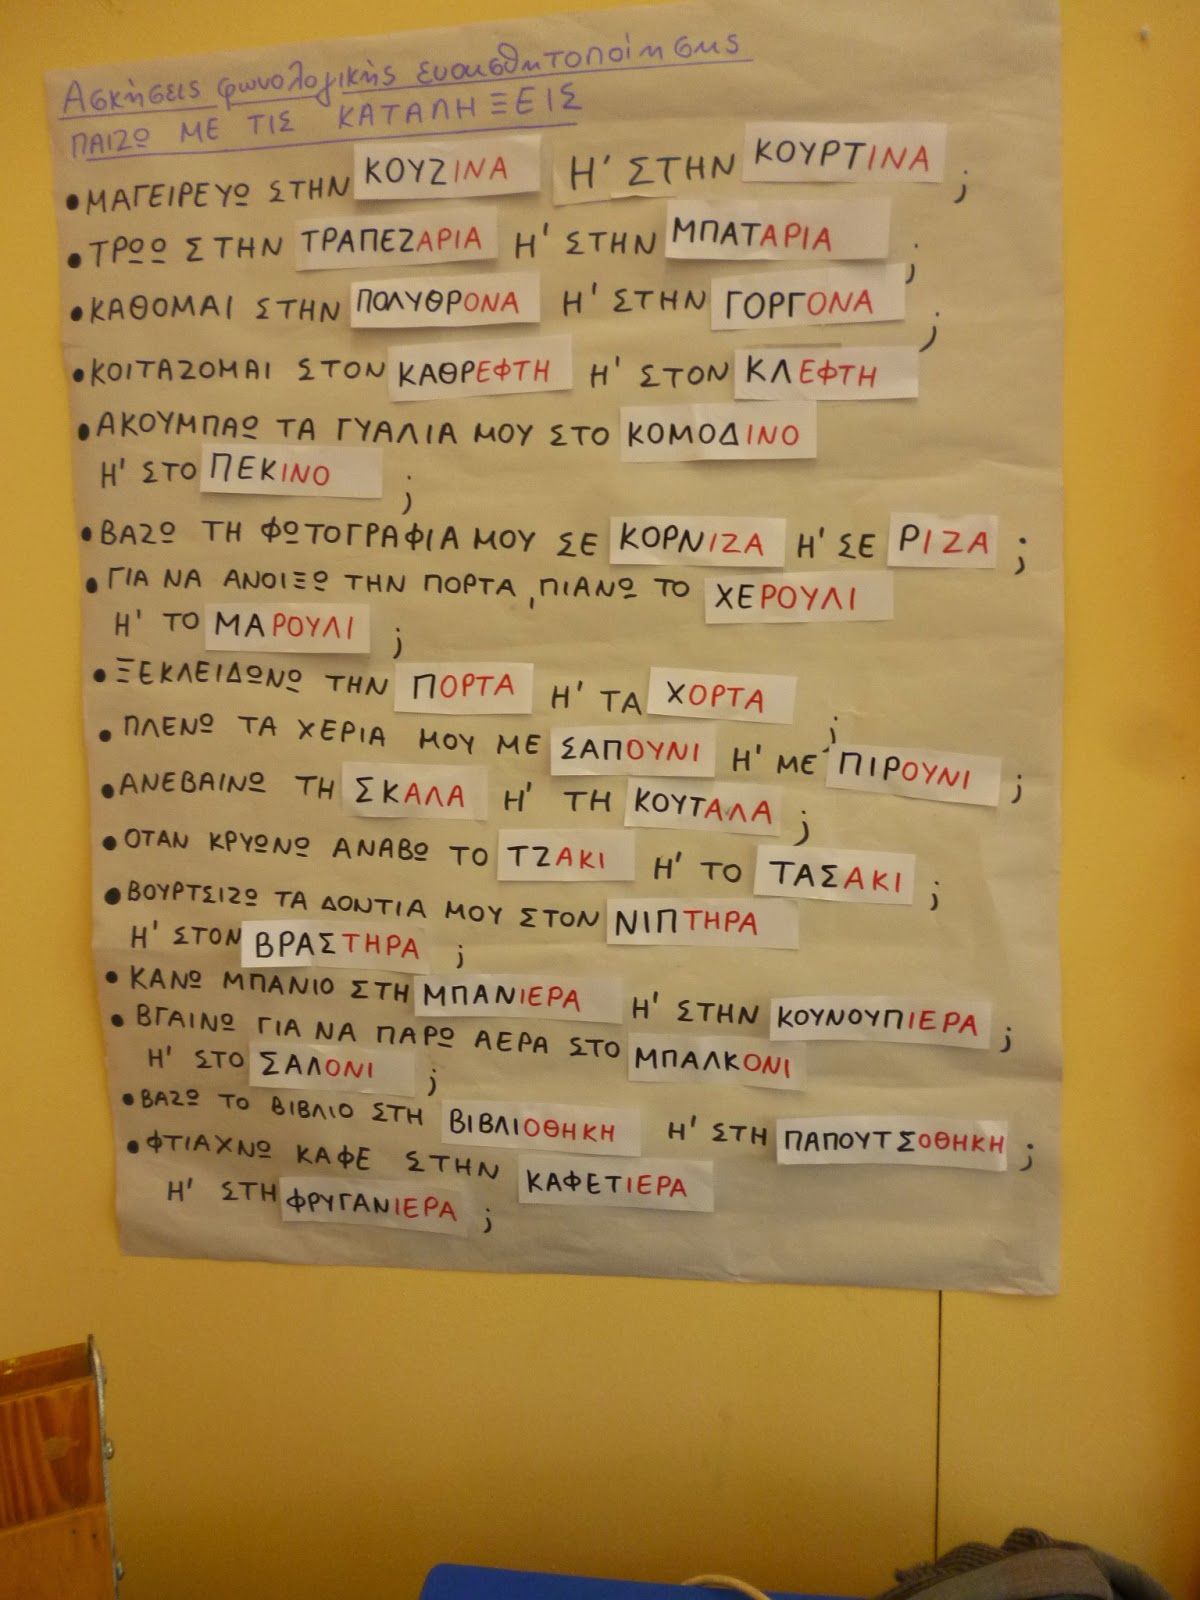 Ασκήσεις φωνολογικής ευαισθητοποίησης
ΠΑΙΖΩ ΜΕ ΤΙΣ ΚΑΤΑΛΗΞΕΙΣ
• ΜΑΓΕΙΡΕΥΩ ΣΤΗΝ ΚΟΥΖΙΝΑ Η' ΣΤΗΝ ΚΟΥΡΤΙΝΑ ;
• ΤΡΩΩ ΣΤΗΝ ΤΡΑΠΕΖΑΡΙΑ Η' ΣΤΗΝ ΜΠΑΤΑΡΙΑ ;
• ΚΑΘΟΜΑΙ ΣΤΗΝ ΠΟΛΥΘΡΟΝΑ Η' ΣΤΗΝ ΓΟΡΓΟΝΑ ;
• ΚΟΙΤΑΖΟΜΑΙ ΣΤΟΝ ΚΑΘΡΕΦΤΗ Η' ΣΤΟΝ ΚΛΕΦΤΗ
• ΑΚΟΥΜΠΑΩ ΤΑ ΓΥΑΛΙΑ ΜΟΥ ΣΤΟ ΚΟΜΟΔΙΝΟ
Η' ΣΤΟ ΠΕΚΙΝΟ ;
• ΒΑΖΩ ΤΗ ΦΩΤΟΓΡΑΦΙΑ ΜΟΥ ΣΕ ΚΟΡΝΙΖΑ Η' ΣΕ ΡΙΖΑ ;
• ΓΙΑ ΝΑ ΑΝΟΙΞΩ ΤΗΝ ΠΟΡΤΑ , ΠΙΑΝΩ ΤΟ ΧΕΡΟΥΛΙ
Η' ΤΟ ΜΑΡΟΥΛΙ ;
• ΞΕΚΛΕΙΔΩΝΩ ΤΗΝ ΠΟΡΤΑ Η' ΤΑ ΧΟΡΤΑ ;
• ΠΛΕΝΩ ΤΑ ΧΕΡΙΑ ΜΟΥ ΜΕ ΣΑΠΟΥΝΙ Η' ΜΕ ΠΙΡΟΥΝΙ ;
• ΑΝΕΒΑΙΝΩ ΤΗ ΣΚΑΛΑ Η' ΤΗ ΚΟΥΤΑΛΑ ;
• ΟΤΑΝ ΚΡΥΩΝΩ ΑΝΑΒΩ ΤΟ ΤΖΑΚΙ Η' ΤΟ ΤΑΣΑΚΙ ;
• ΒΟΥΡΤΣΙΖΩ ΤΑ ΔΟΝΤΙΑ ΜΟΥ ΣΤΟΝ ΝΙΠΤΗΡΑ
Η' ΣΤΟΝ ΒΡΑΣΤΗΡΑ ;
• ΚΑΝΩ ΜΠΑΝΙΟ ΣΤΗ ΜΠΑΝΙΕΡΑ Η' ΣΤΗΝ ΚΟΥΝΟΥΠΙΕΡΑ ;
• ΒΓΑΙΝΩ ΓΙΑ ΝΑ ΠΑΡΩ ΑΕΡΑ ΣΤΟ ΜΠΑΛΚΟΝΙ
Η' ΣΤΟ ΣΑΛΟΝΙ ;
• ΒΑΖΩ ΤΟ ΒΙΒΛΙΟ ΣΤΗ ΒΙΒΛΙΟΘΗΚΗ Η' ΣΤΗ ΠΑΠΟΥΤΣΟΘΗΚΗ ;
• ΦΤΙΑΧΝΩ ΚΑΦΕ ΣΤΗΝ ΚΑΦΕΤΙΕΡΑ
Η' ΣΤΗ ΦΡΥΓΑΝΙΕΡΑ ;